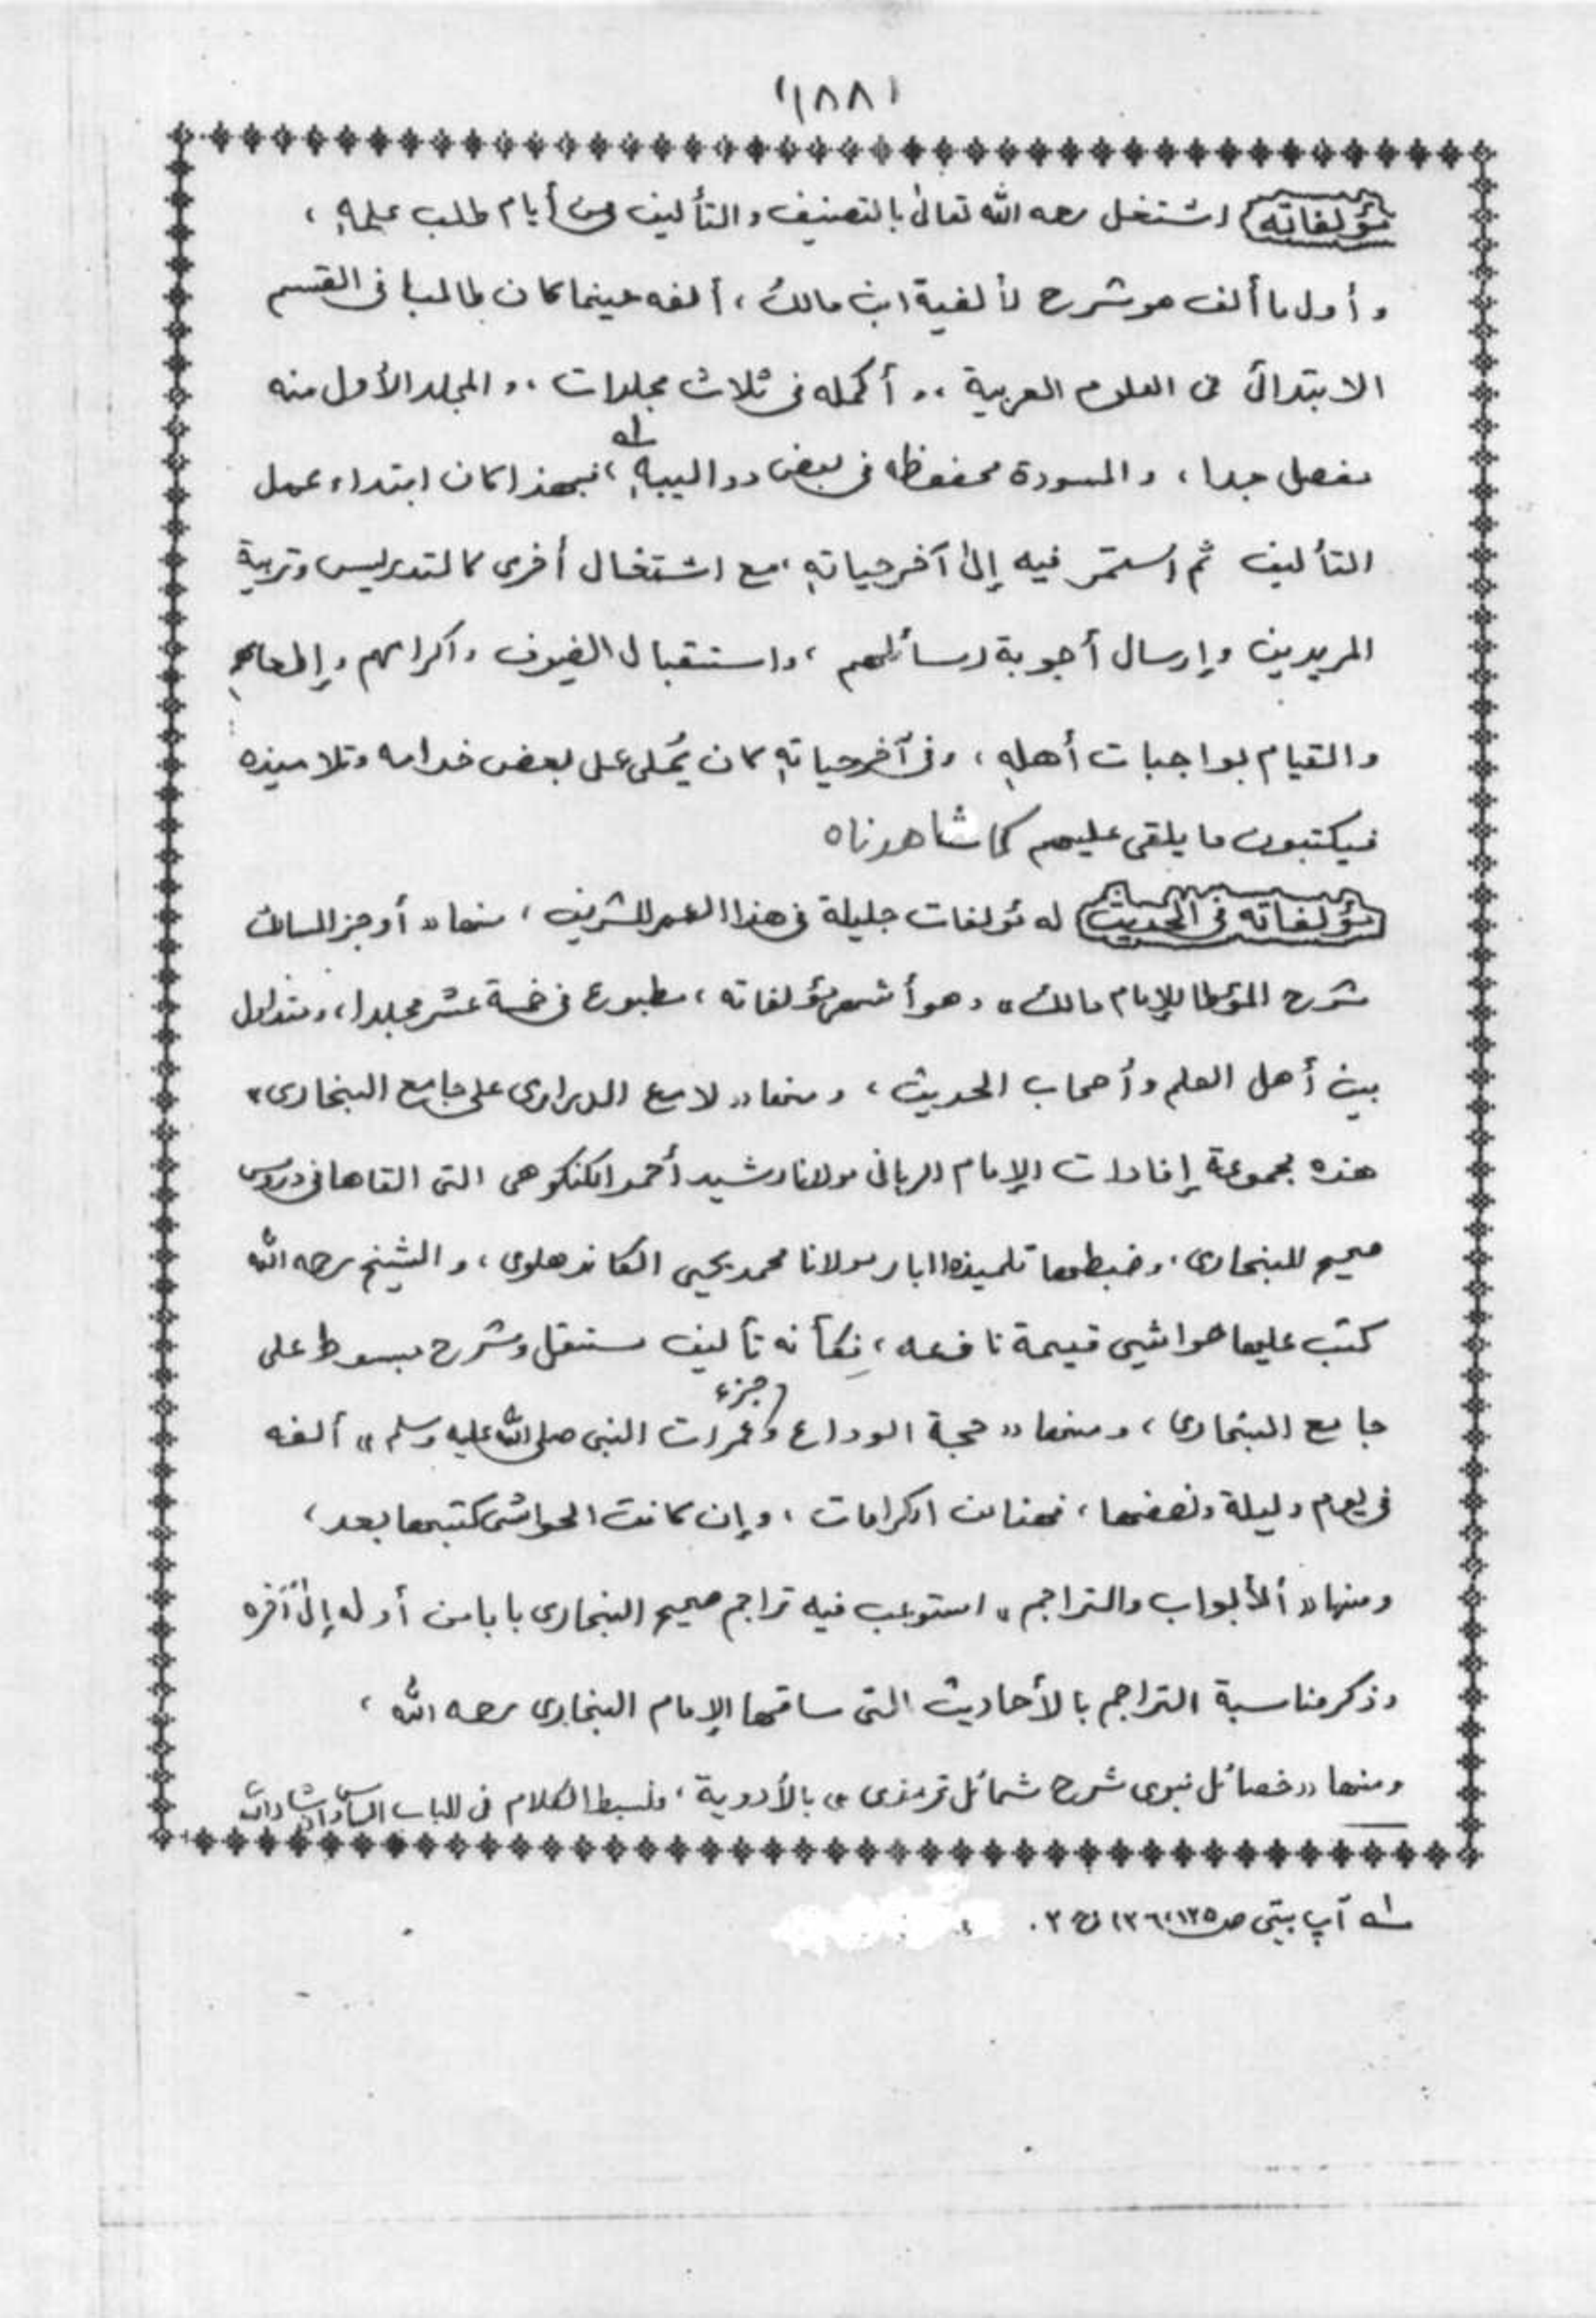 (١٨٨)
مؤلفاته اشتغل رحمه الله تعالى بالتصنيف والتأليف من أيام طلب علمه،
وأول ما ألف هو شرح لألفية ابن مالك، ألفه حينما كان طالبا في القسم
الابتدائي في العلوم العربية، وأكمله في ثلاث مجلدات، والمجلد الأول منه
مفصل جدا، والمسودة محفوظه في بعض دواليبه لـه، فبهذا كان ابتداء عمل
التأليف ثم استمر فيه إلى آخر حياته، مع اشتغال أخرى كالتدريس وتربية
المريدين وإرسال أجوبة رسائلهم، واستقبال الضيوف واكرامهم وإطعامهم
والقيام بواجبات أهله، وفي آخر حياته كان يُملي على بعض خدامه وتلاميذه
فيكتبون ما يلقى عليهم كما شاهدناه
مؤلفاته في الحديث له مؤلفات جليلة في هذا العمر الشريف، منها «أوجز المسالك
شرح المؤطا للإمام مالك» وهو أشهر مؤلفاته، مطبوع في خمسة عشر مجلدا، ومتداول
بين أهل العلم وأصحاب الحديث، ومنها «لامع الدراري على جامع البخاري»
هذه مجموعة إفادات الإمام الرباني مولانا رشيد أحمد الكنكوهي التي القاها في دروس
صحيح البخاري، وضبطها تلميذه البار مولانا محمد يحيى الكاندهلوي، والشيخ رحمه الله
كتب عليها حواشي قيمة نافعه، فكأنه تأليف مستقل وشرح مبسوط على
جامع البخاري، ومنها «حجة الوداع وجزء عمرات النبي صلى الله عليه وسلم» ألفه
في يوم وليلة ونصفها، فهنالك اكرامات، وإن كانت الحواشي كتبها بعد،
ومنها «ألأبواب والتراجم» استوعب فيه تراجم صحيح البخاري بابا من أوله إلى آخره
وذكر مناسبة التراجم بالأحاديث التي ساقها الإمام البخاري رحمه الله،
ومنها «خصائل نبوي شرح شمائل ترمذي» بالأردوية، وبسط الكلام في الباب
لـه آپ بيتي ص ١٢٥، ١٢٦ ج ٢.